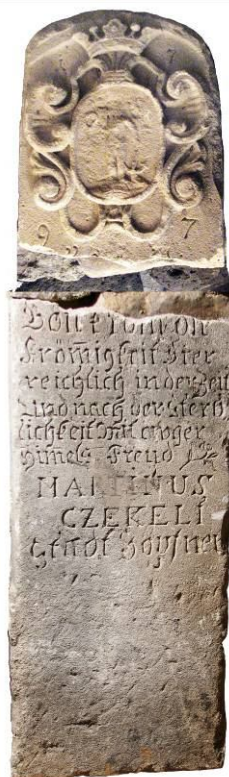 7
9 7
Fröm̄igkeit Hier
reichlich in der Zeit
Und nach der Sterb
lichkeit Mit ewger
Himels Freud
MARTINUS
CZEKELI
Stadt